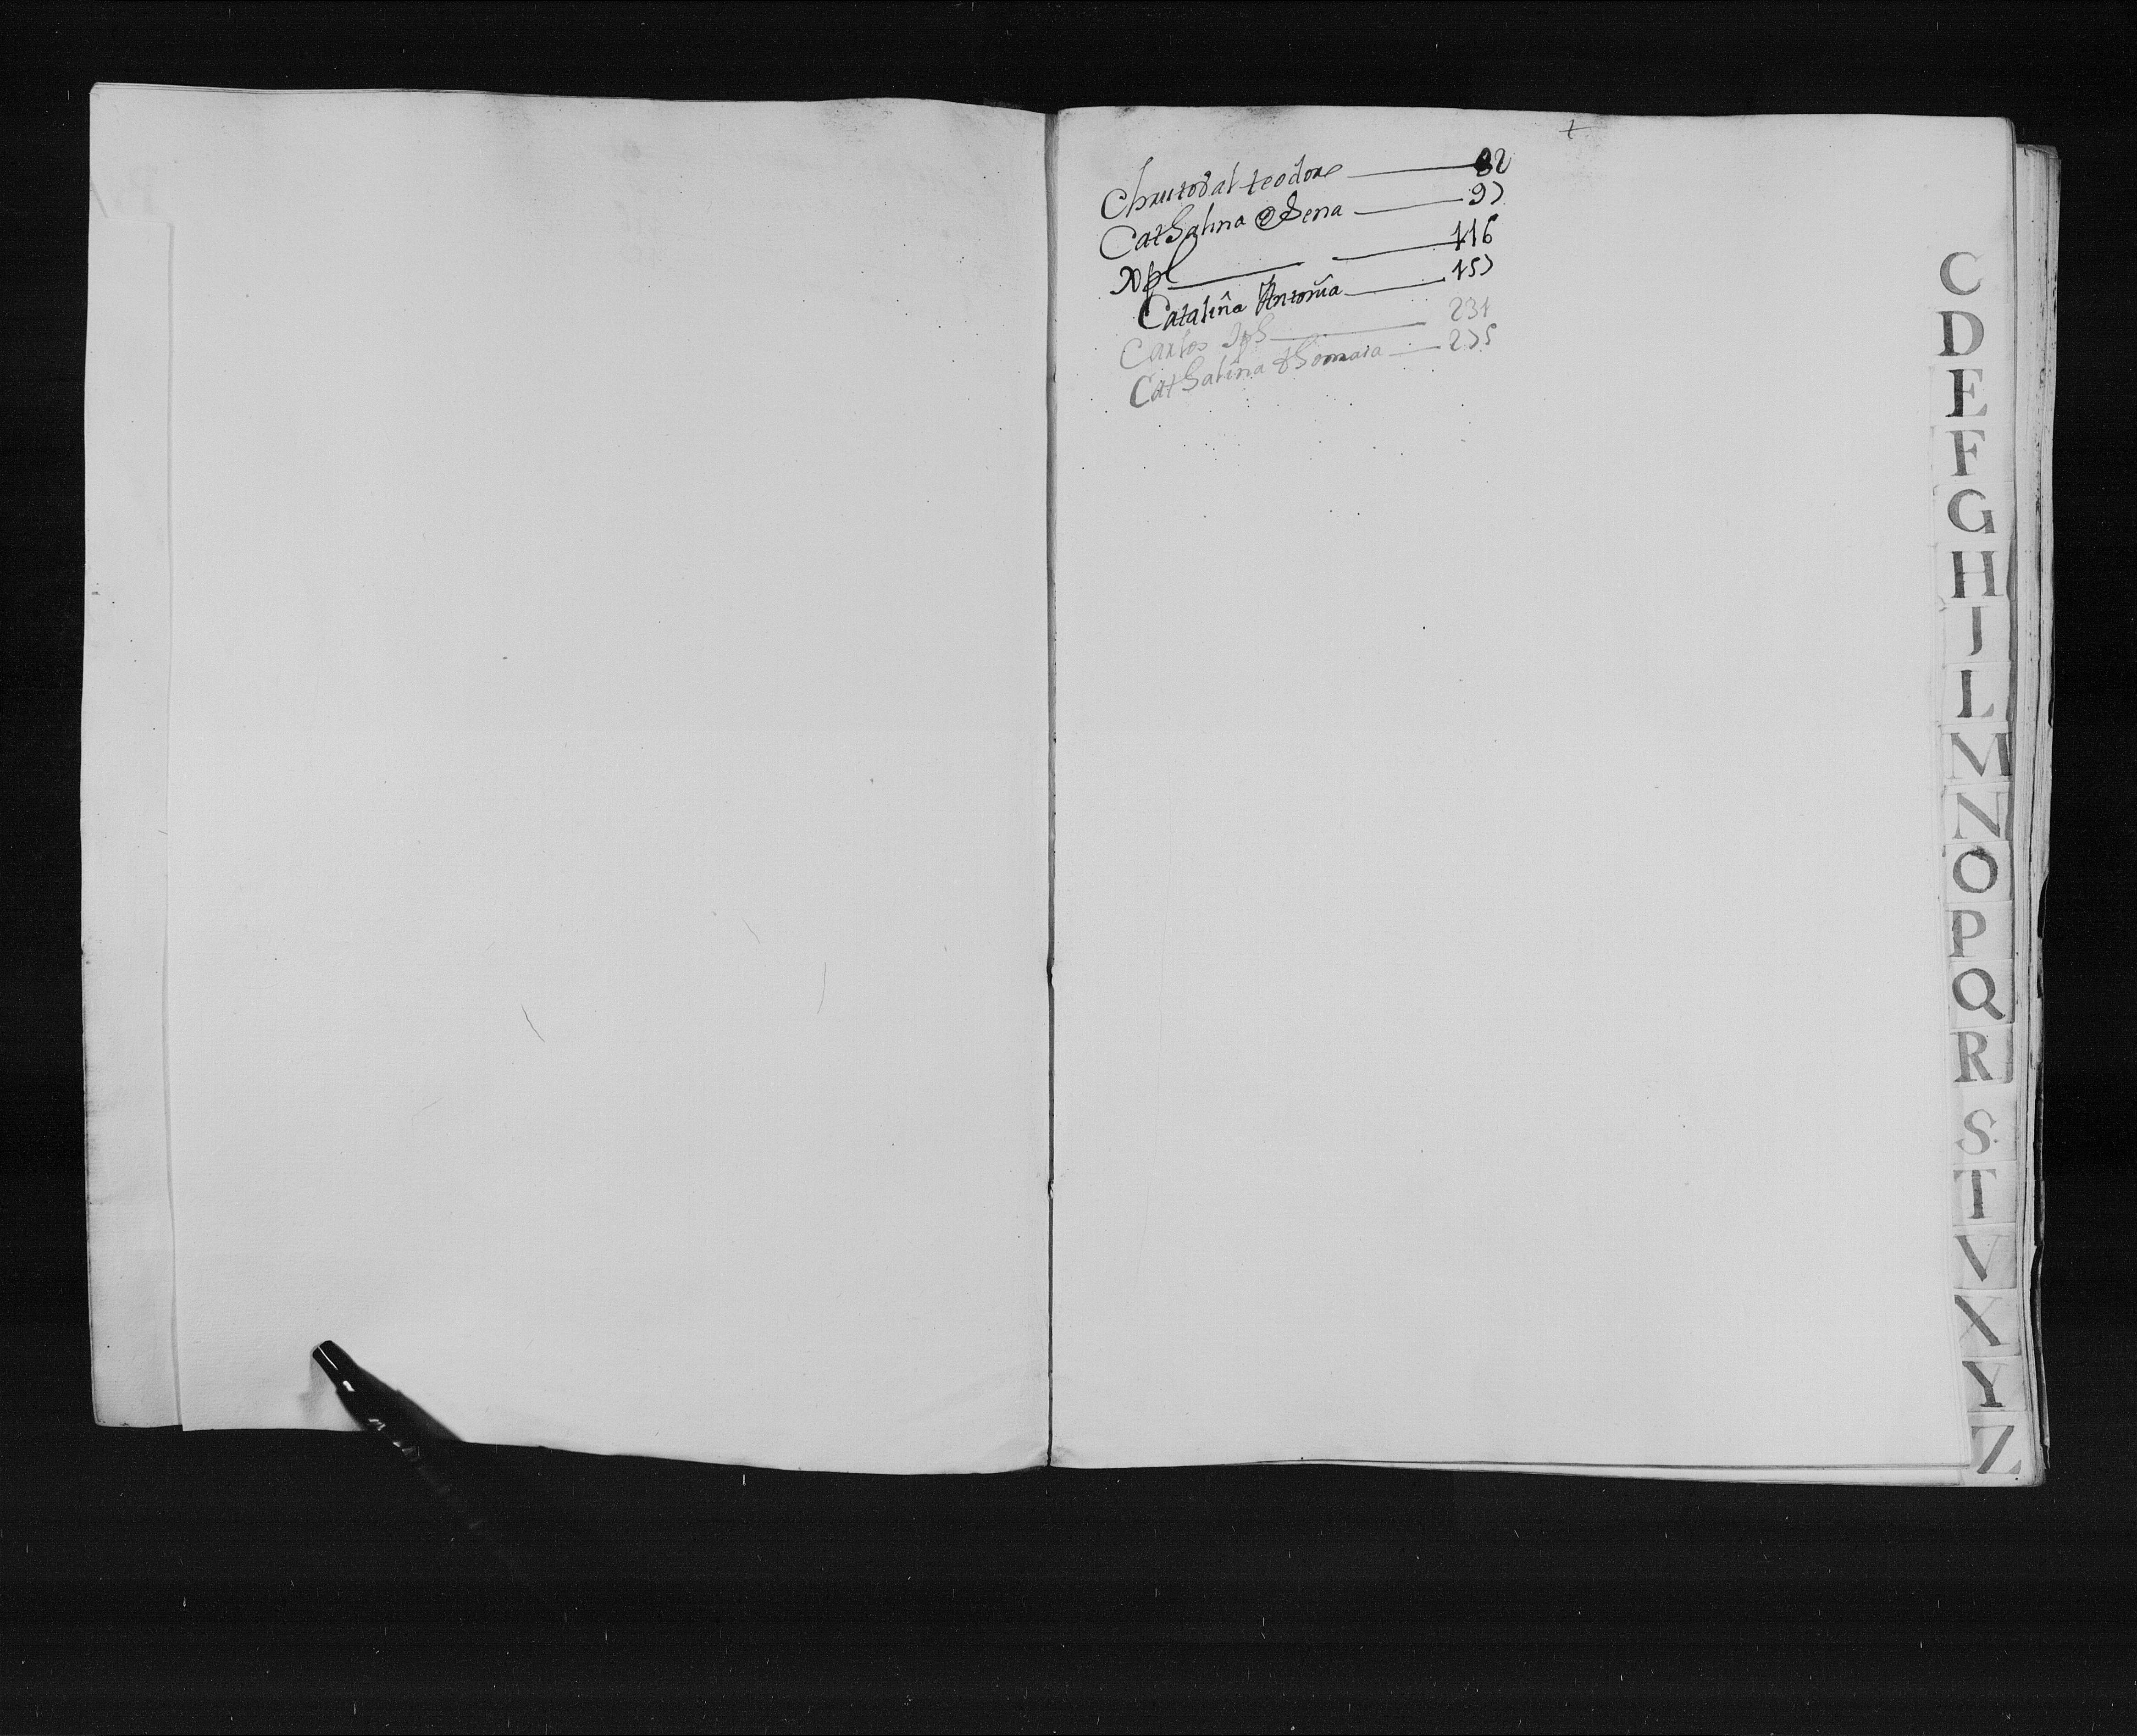 +
Christobal teodoro 82
Cathalina de Sena 97
Xpl 116
Cataliña Antoñia 157
Carlos Jph 231
Cathalina thomasa 275
C
D
E
F
G
H
I
L
M
N
O
P
Q
R
S
T
V
X
Y
Z